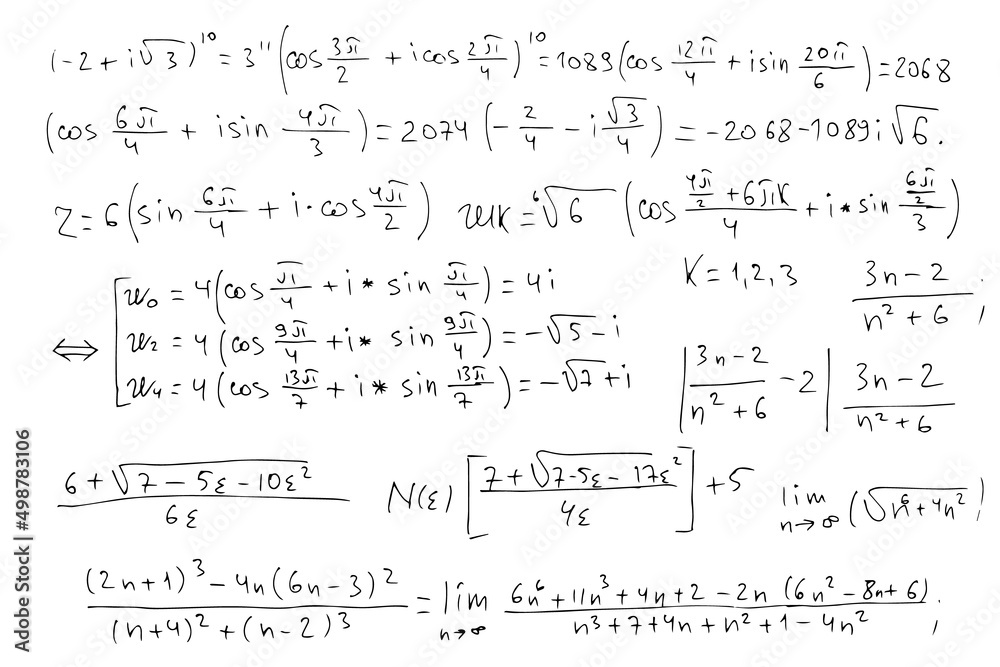 (-2 + i√3)^10 = 3^11 (cos 3π/2 + i cos 2π/4)^10 = 1089 (cos 12π/4 + i sin 20π/6) = 2068
(cos 6π/4 + i sin 4π/3) = 2074 (-2/4 - i √3/4) = -2068-1089i√6.
Z = 6 (sin 6π/4 + i·cos 4π/2) wk = ⁶√6 (cos (4π/2 + 6πk)/4 + i * sin (6π/2)/3)
⇔ [ w₀ = 4 (cos π/4 + i * sin π/4) = 4i
w₂ = 4 (cos 9π/4 + i * sin 9π/4) = -√5 - i
w₄ = 4 (cos 13π/7 + i * sin 13π/7) = -√7 + i
K = 1,2,3 (3n - 2)/(n² + 6) ,
|(3n - 2)/(n² + 6) - 2| (3n - 2)/(n² + 6)
(6 + √(7 - 5ε - 10ε²))/(6ε) N(ε) [(7 + √(7-5ε - 17ε²))/(4ε)] + 5 lim n→∞ (√(n⁶ + 4n²))
((2n+1)³ - 4n(6n-3)²)/((n+4)² + (n-2)³) = lim n→∞ (6n⁶ + 11n³ + 4n + 2 - 2n (6n² - 8n + 6))/(n³ + 7 + 4n + n² + 1 - 4n²) ;
Adobe Stock | #498783106
Adobe Stock